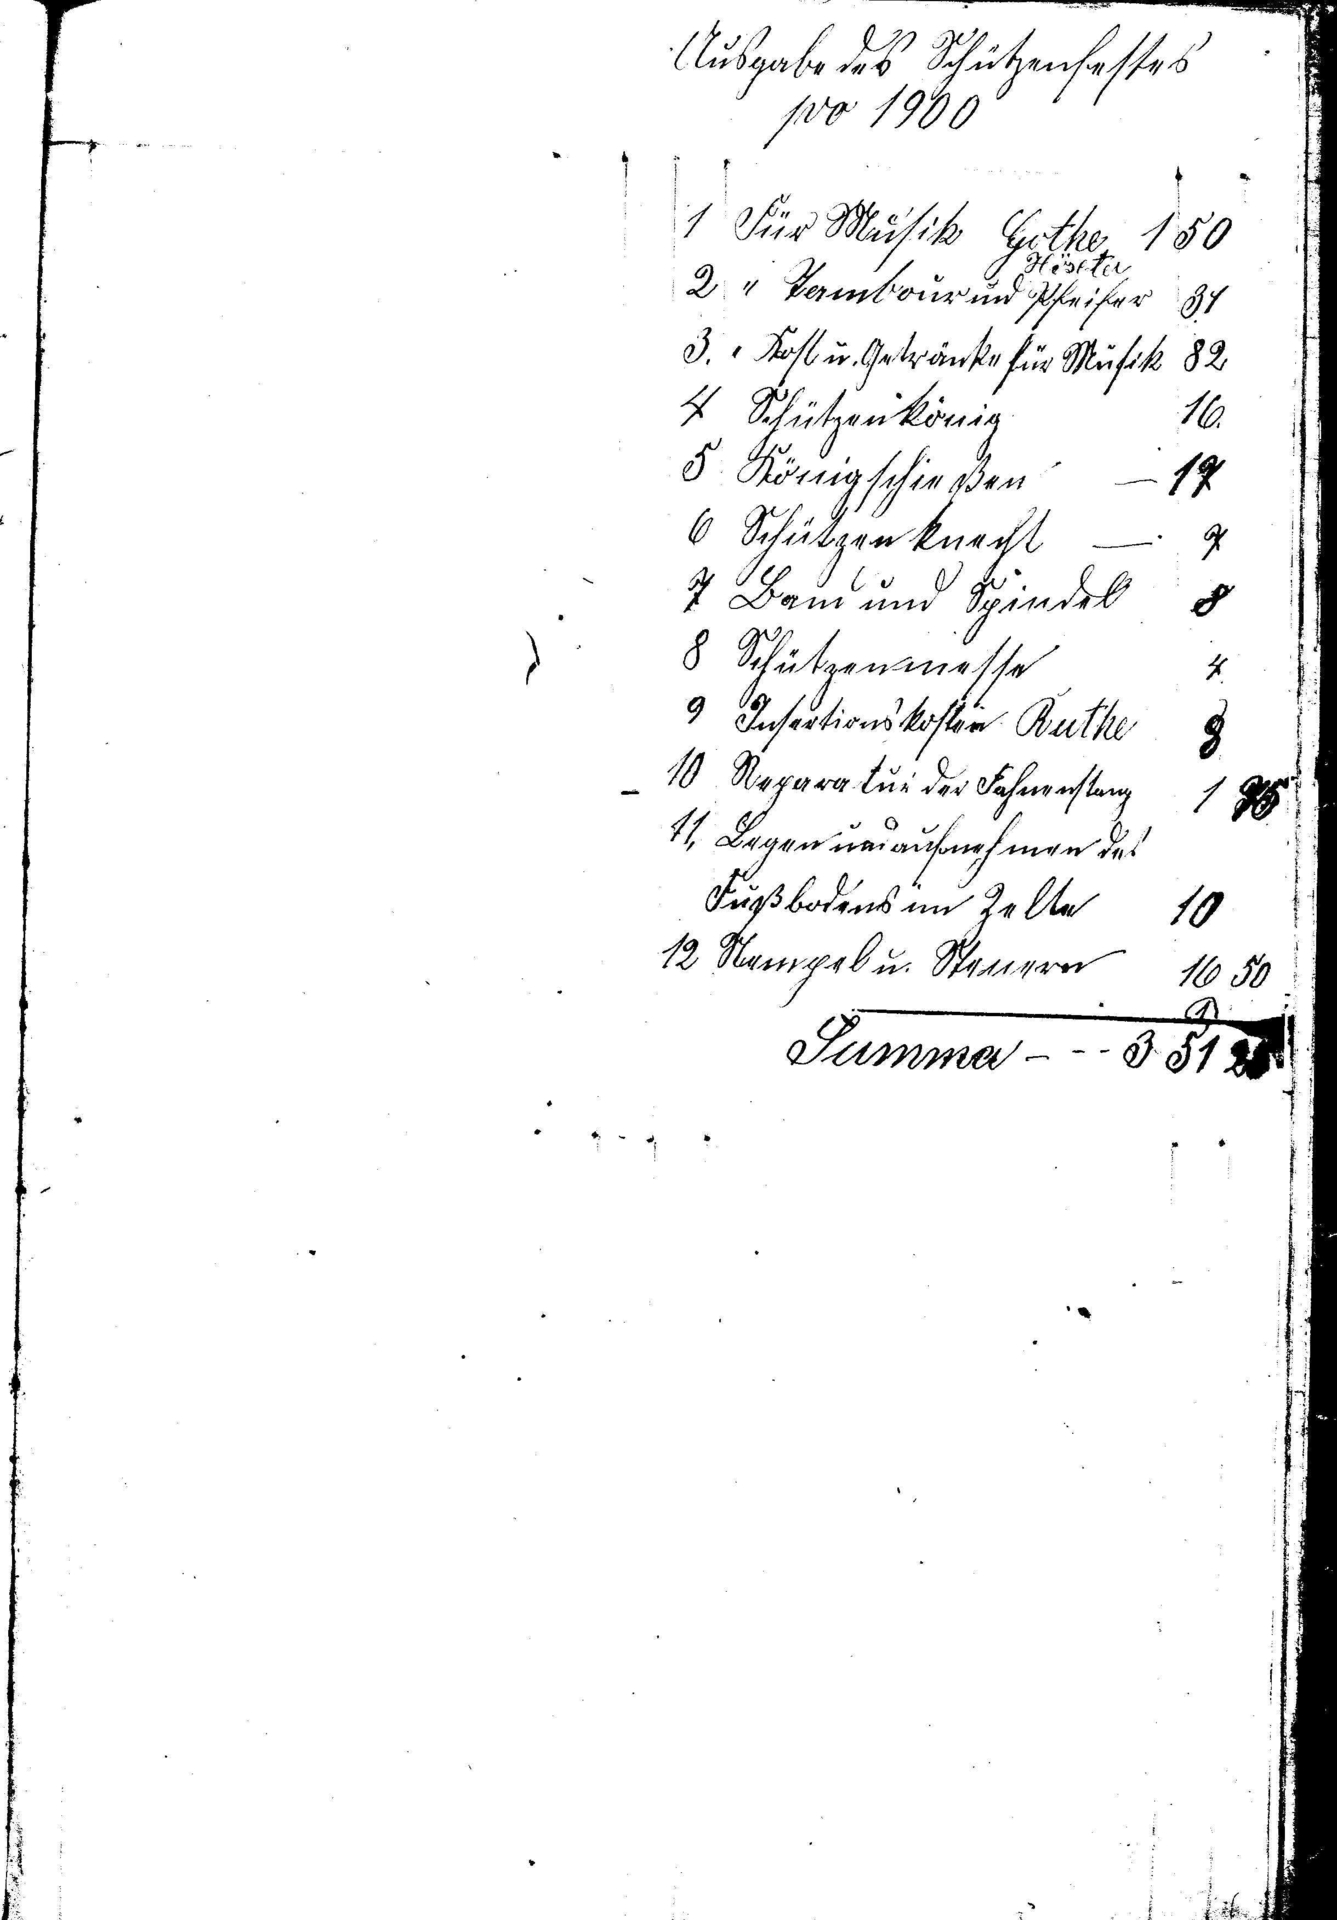 Ausgabe des Schützenfestes
pro 1900
1 Für Musik Gothe 150
Höxter
2 " Tambour und Pfeifer 31
3. " Kost u. Getränke für Musik 82
4 Schützenkönig 16.
5 Königschießen — 17
6 Schützenknecht — 7
7 Band und Spindel 8
8 Schützenmesse 4
9 Insertionskosten Ruthe 8
10 Reparatur der Fahnenstang 1 75
11, Legen und aufnehmen des
Fußbodens im Zelte 10
12 Stempel u. Steuern 16 50
Summa - - - 351 25